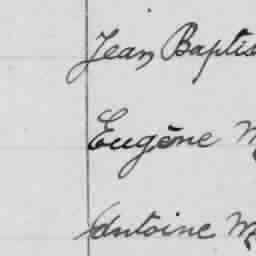 Jean Baptis
Eugène M
Antoine M